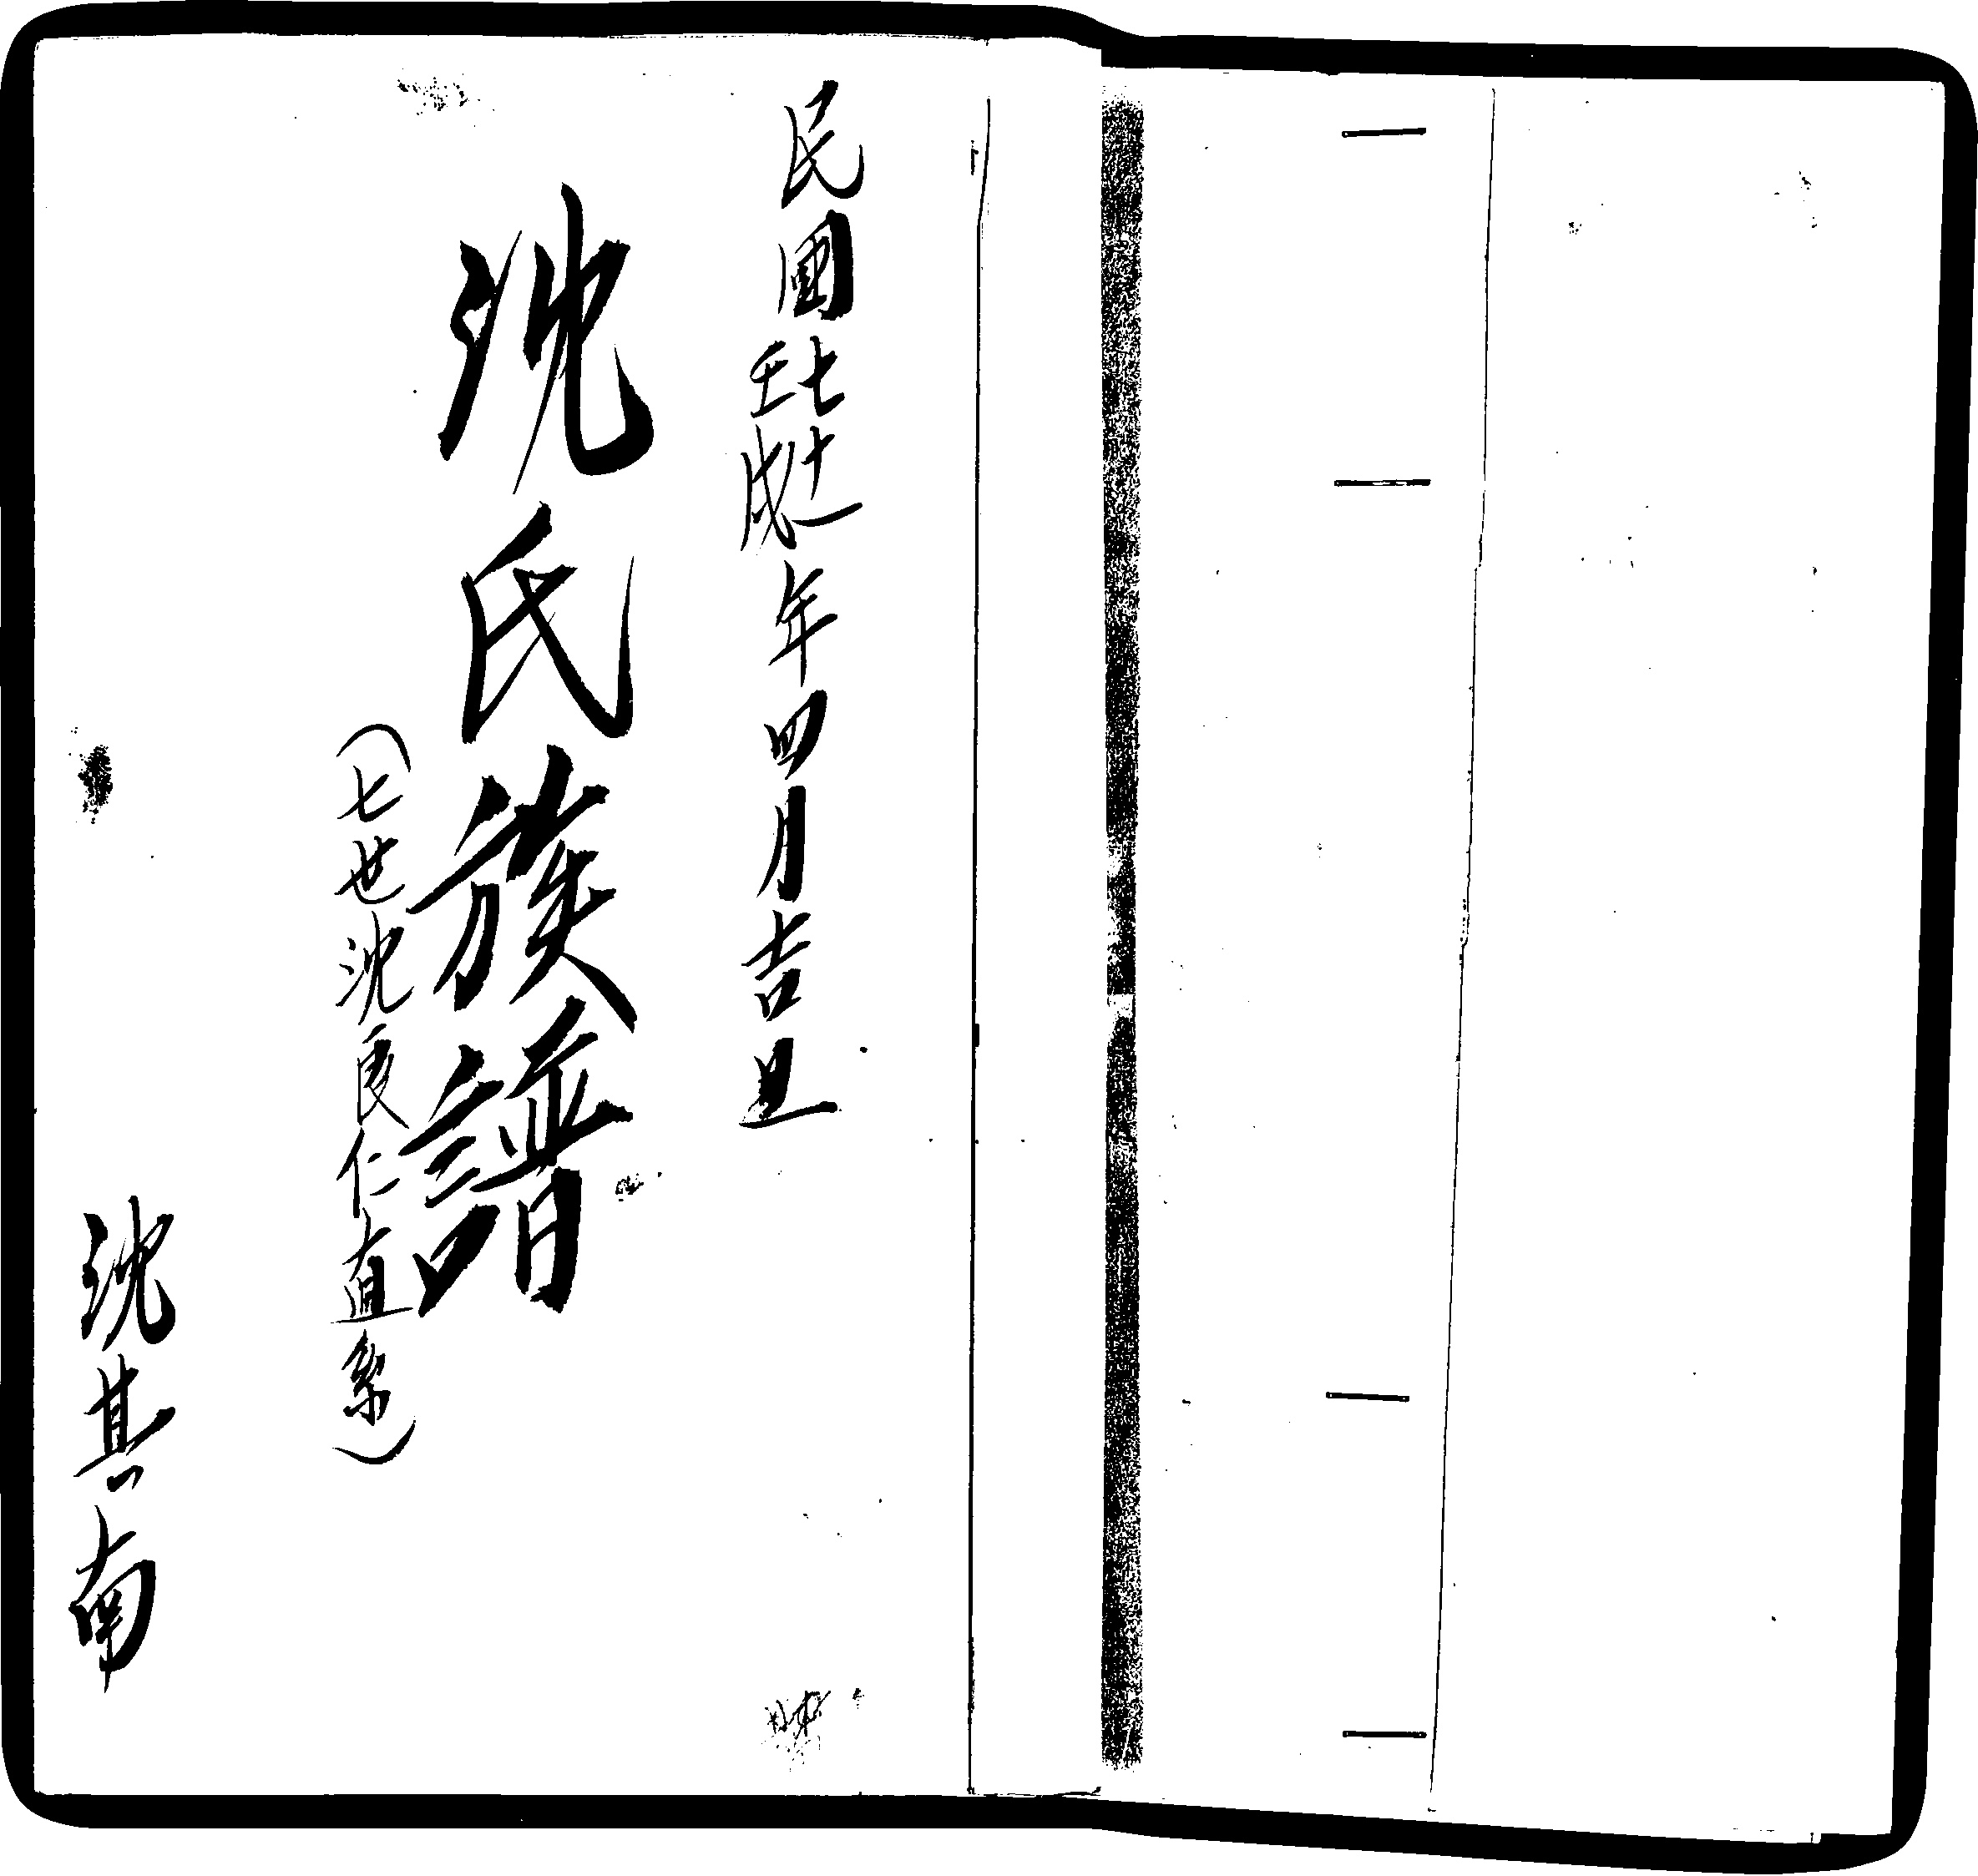 民國七十一壬戌年四月吉旦
沈氏族譜
（七世沈良仁直系）
沈其南